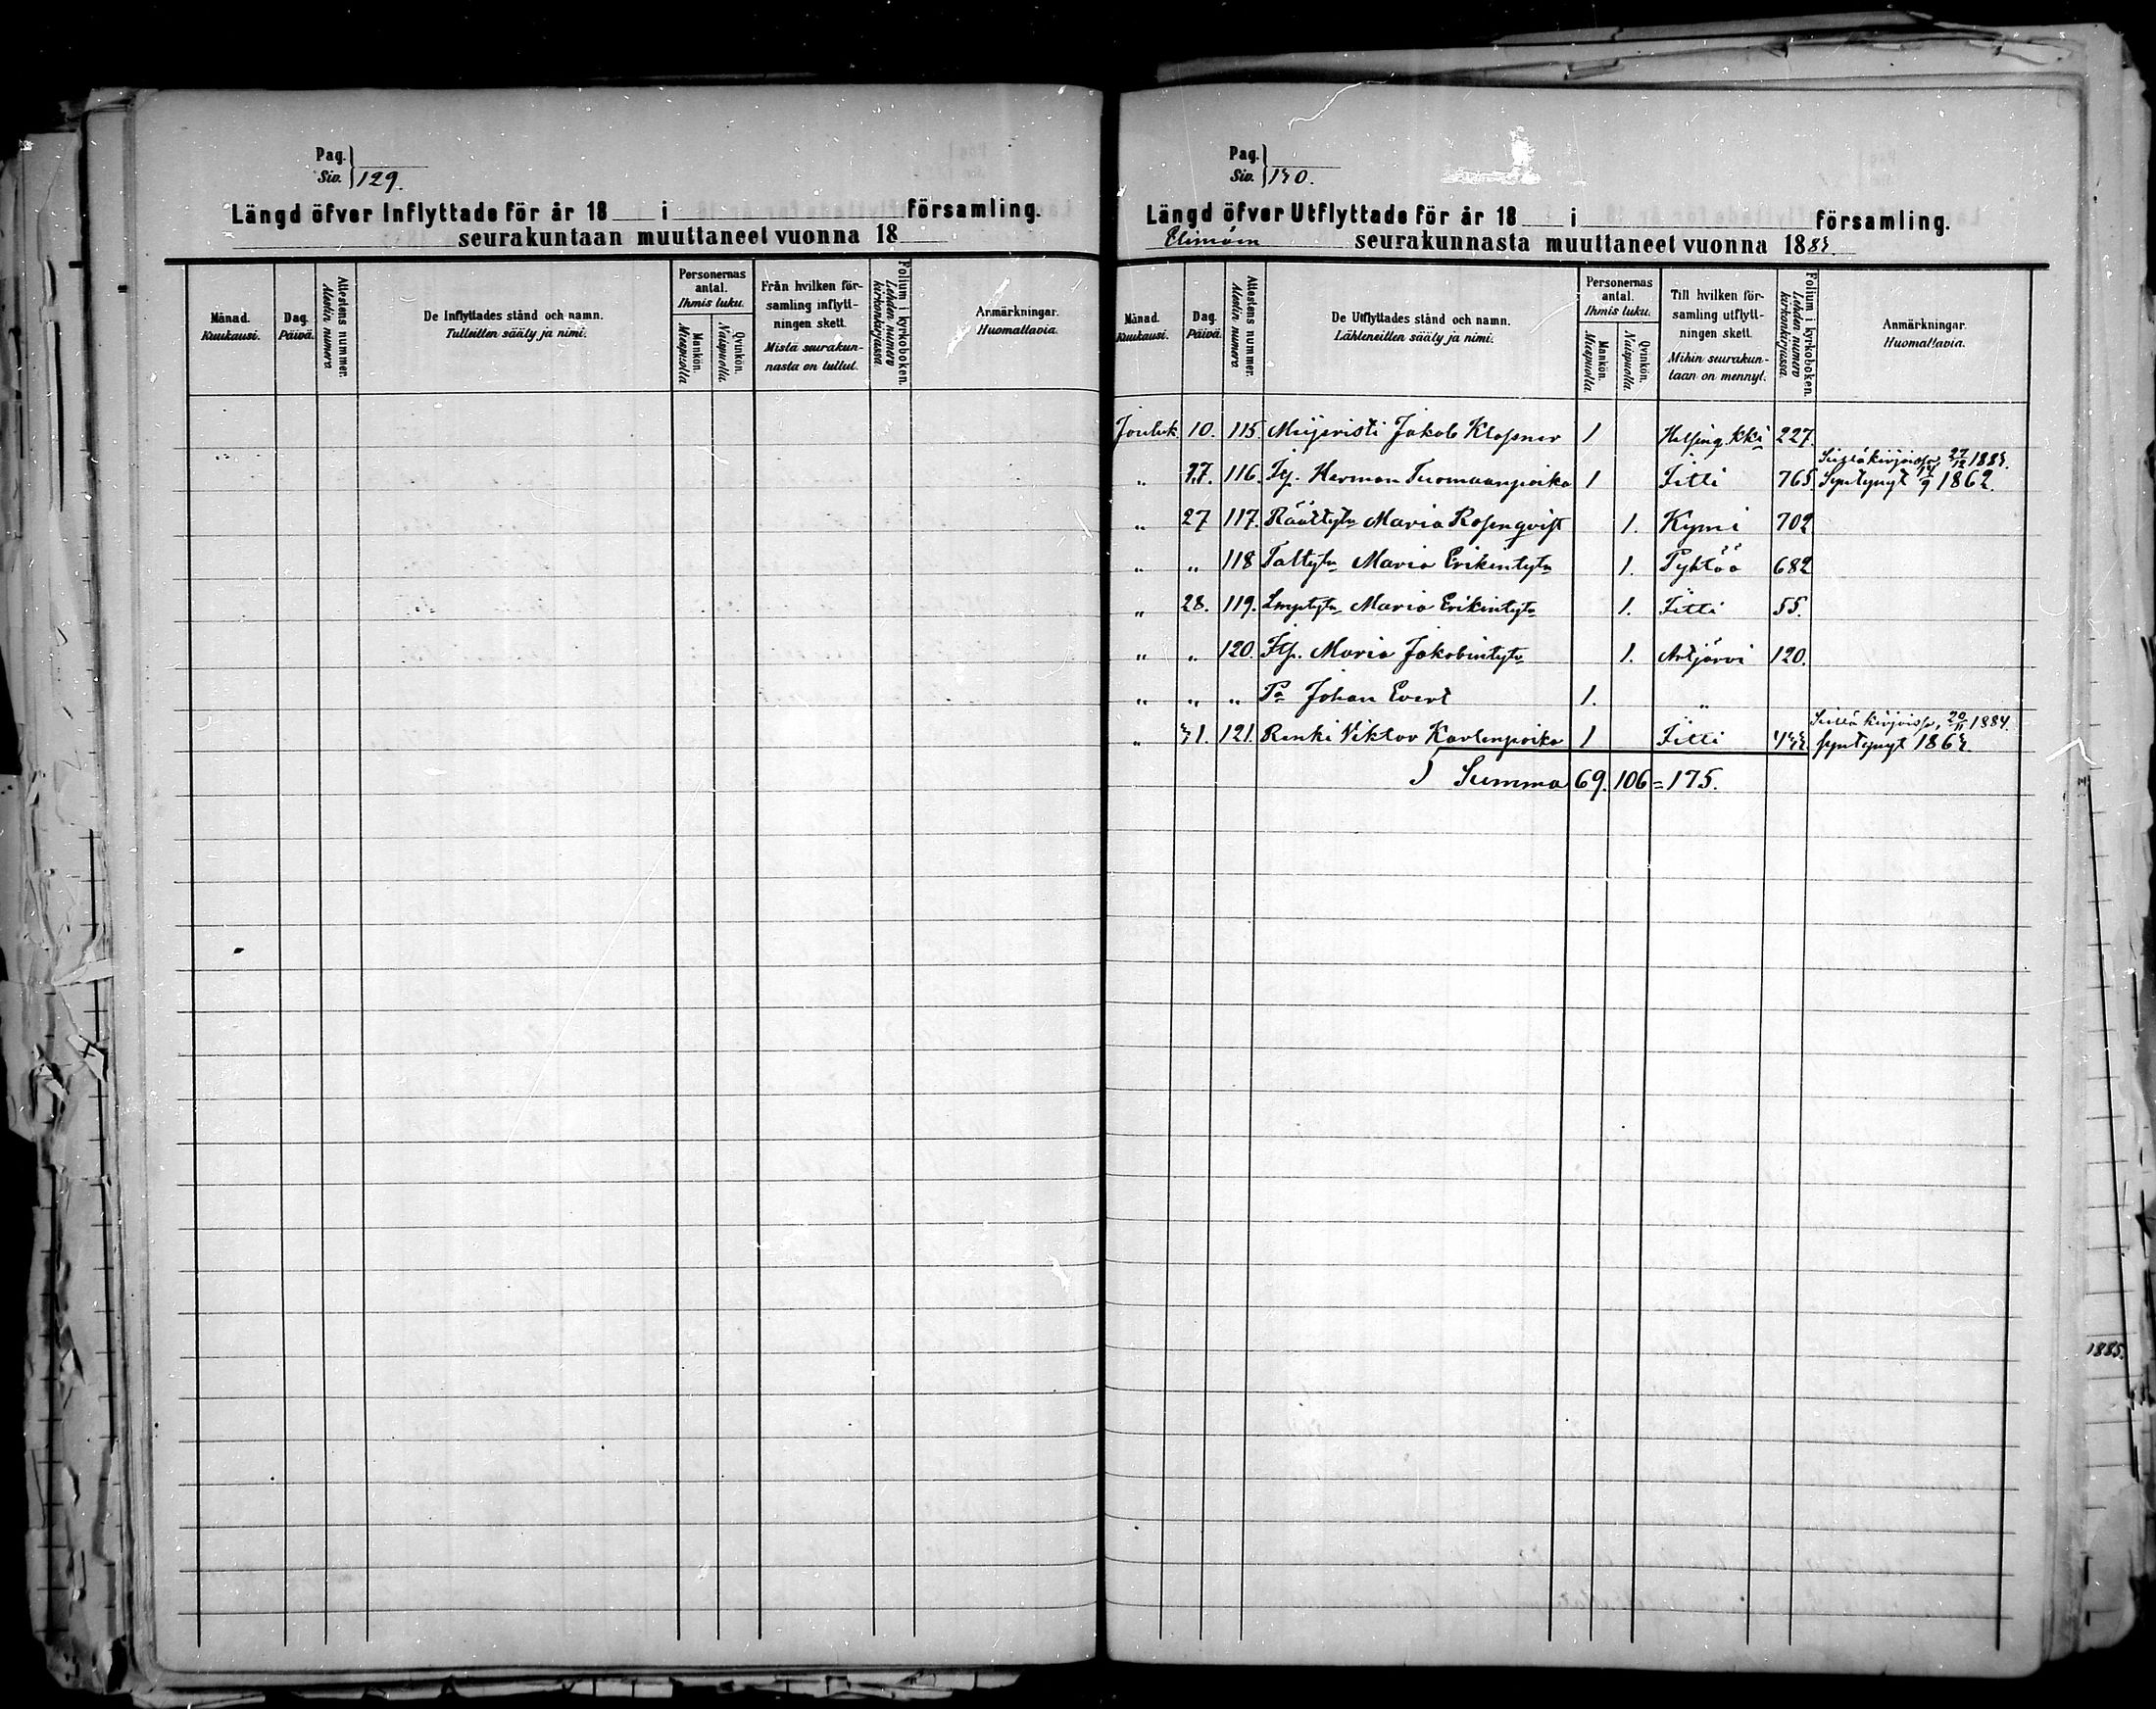 Pag.
Siv. 129.
Längd öfver Inflyttade för år 18 i församling.
seurakuntaan muuttaneet vuonna 18
Månad. Kuukausi.
Dag. Päivä.
Attestens nummer. Alestin numero
De Inflyttades stånd och namn.
Tulleitten sääty ja nimi.
Personernas antal.
Ihmis luku.
Mankön. Miespuolia
Qvinkön. Naispuolia
Från hvilken för-
samling inflytt-
ningen skett.
Mistä seurakun-
nasta on tullut.
Folium i kyrkoboken.
Lehden numero kirkonkirjassa.
Anmärkningar.
Huomattavia.
Pag.
Siv. 130.
Längd öfver Utflyttade för år 18 i församling.
Elimäen seurakunnasta muuttaneet vuonna 1883.
Månad. Kuukausi.
Dag. Päivä.
Attestens nummer. Alestin numero
De Utflyttades stånd och namn.
Lähteneitten sääty ja nimi.
Personernas antal.
Ihmis luku.
Mankön. Miespuolia
Qvinkön. Naispuolia
Till hvilken för-
samling utflytt-
ningen skett.
Mihin seurakun-
taan on mennyt.
Folium i kyrkoboken.
Lehden numero kirkonkirjassa.
Anmärkningar.
Huomattavia.
Jouluk. 10. 115. Meijeristi Jakob Klossner 1 Helsing. kki 227.
27/12 1883.
" 17. 116. Herman Tuomaanpoika 1 Iitti 765. Syntynyt 1862.
" 27 117. Räättytär Maria Rosenqvist 1. Kymi 702
" " 118 Taltytär Maria Erikintytär 1. Pyhtää 682
" 28. 119. Lmptytär Maria Erikintytär 1. Iitti 55.
" " 120. Its. Maria Jakobintytär 1. Artjärvi 120.
" " " Pa Johan Evert 1. "
20/11 1884.
" 31. 121. Renki Viktor Kaarlenpoika 1 Iitti syntynyt 1863.
Summa 69. 106 = 175.
1885.